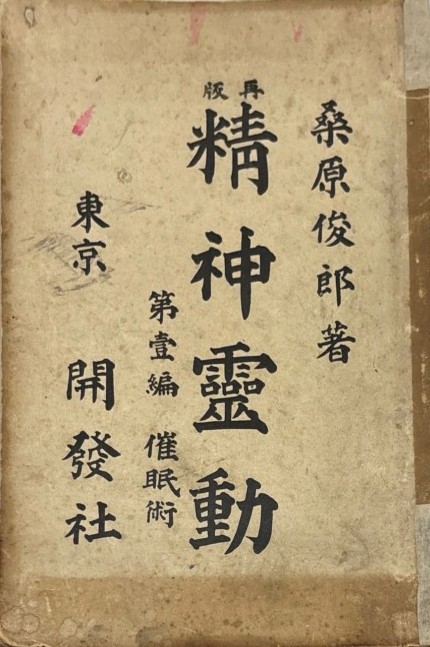 桑原俊郎著
再版
精神靈動
第壹編 催眠術
東京 開發社